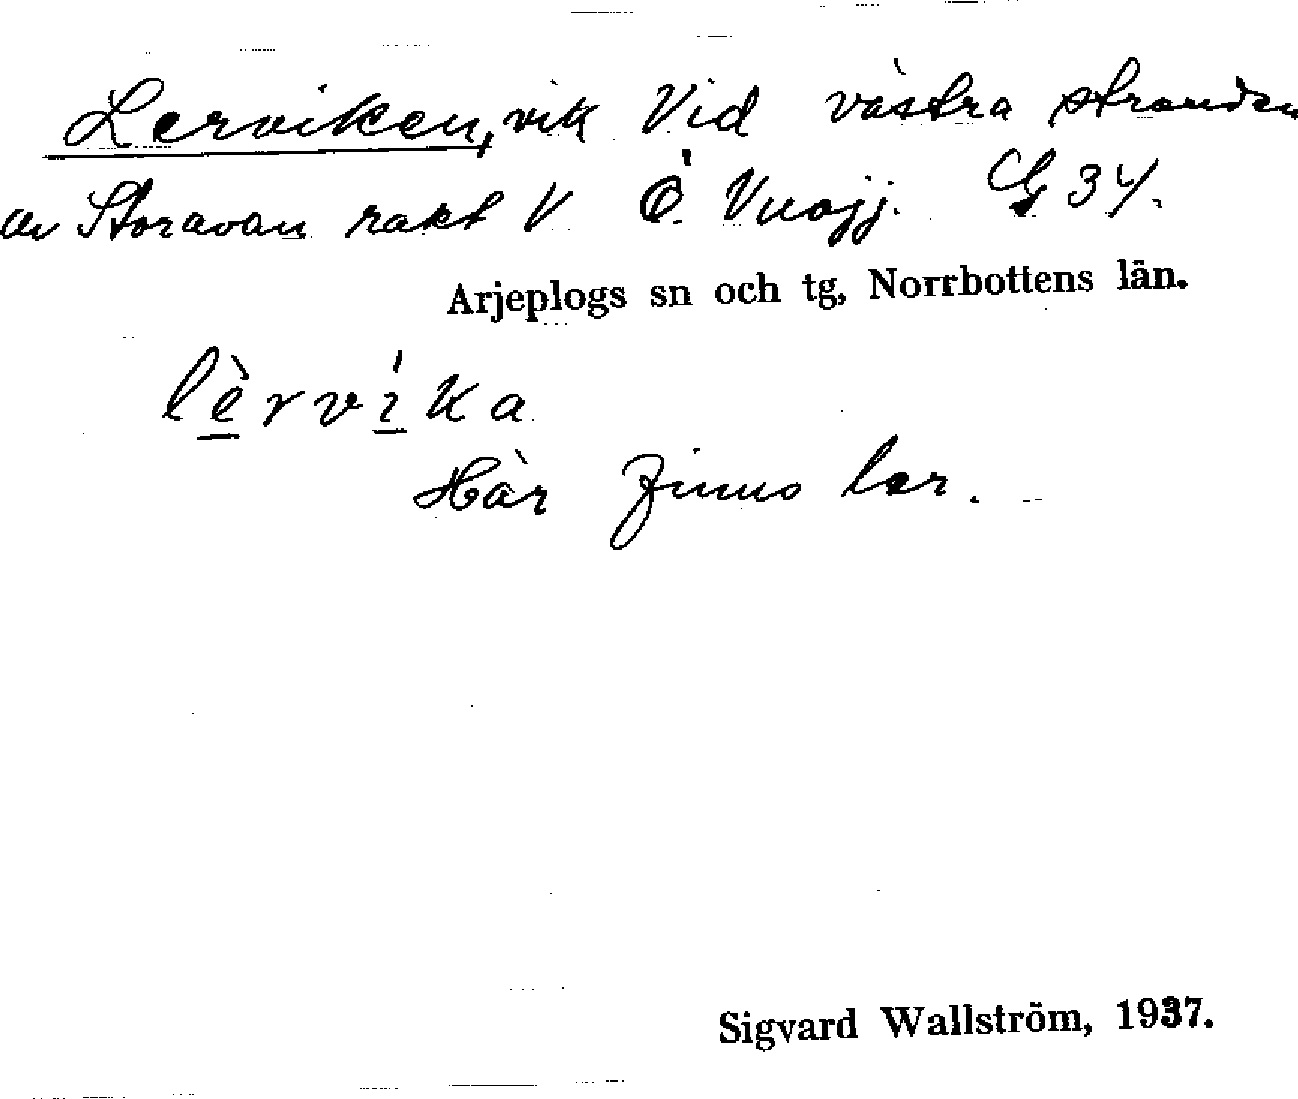 Lerviken, vik Vid västra stranden
av Storavan rakt V Ö. Vuojj. G 34.
Arjeplogs sn och tg, Norrbottens län.
lèrvíka
Här finns ler.
Sigvard Wallström, 1937.